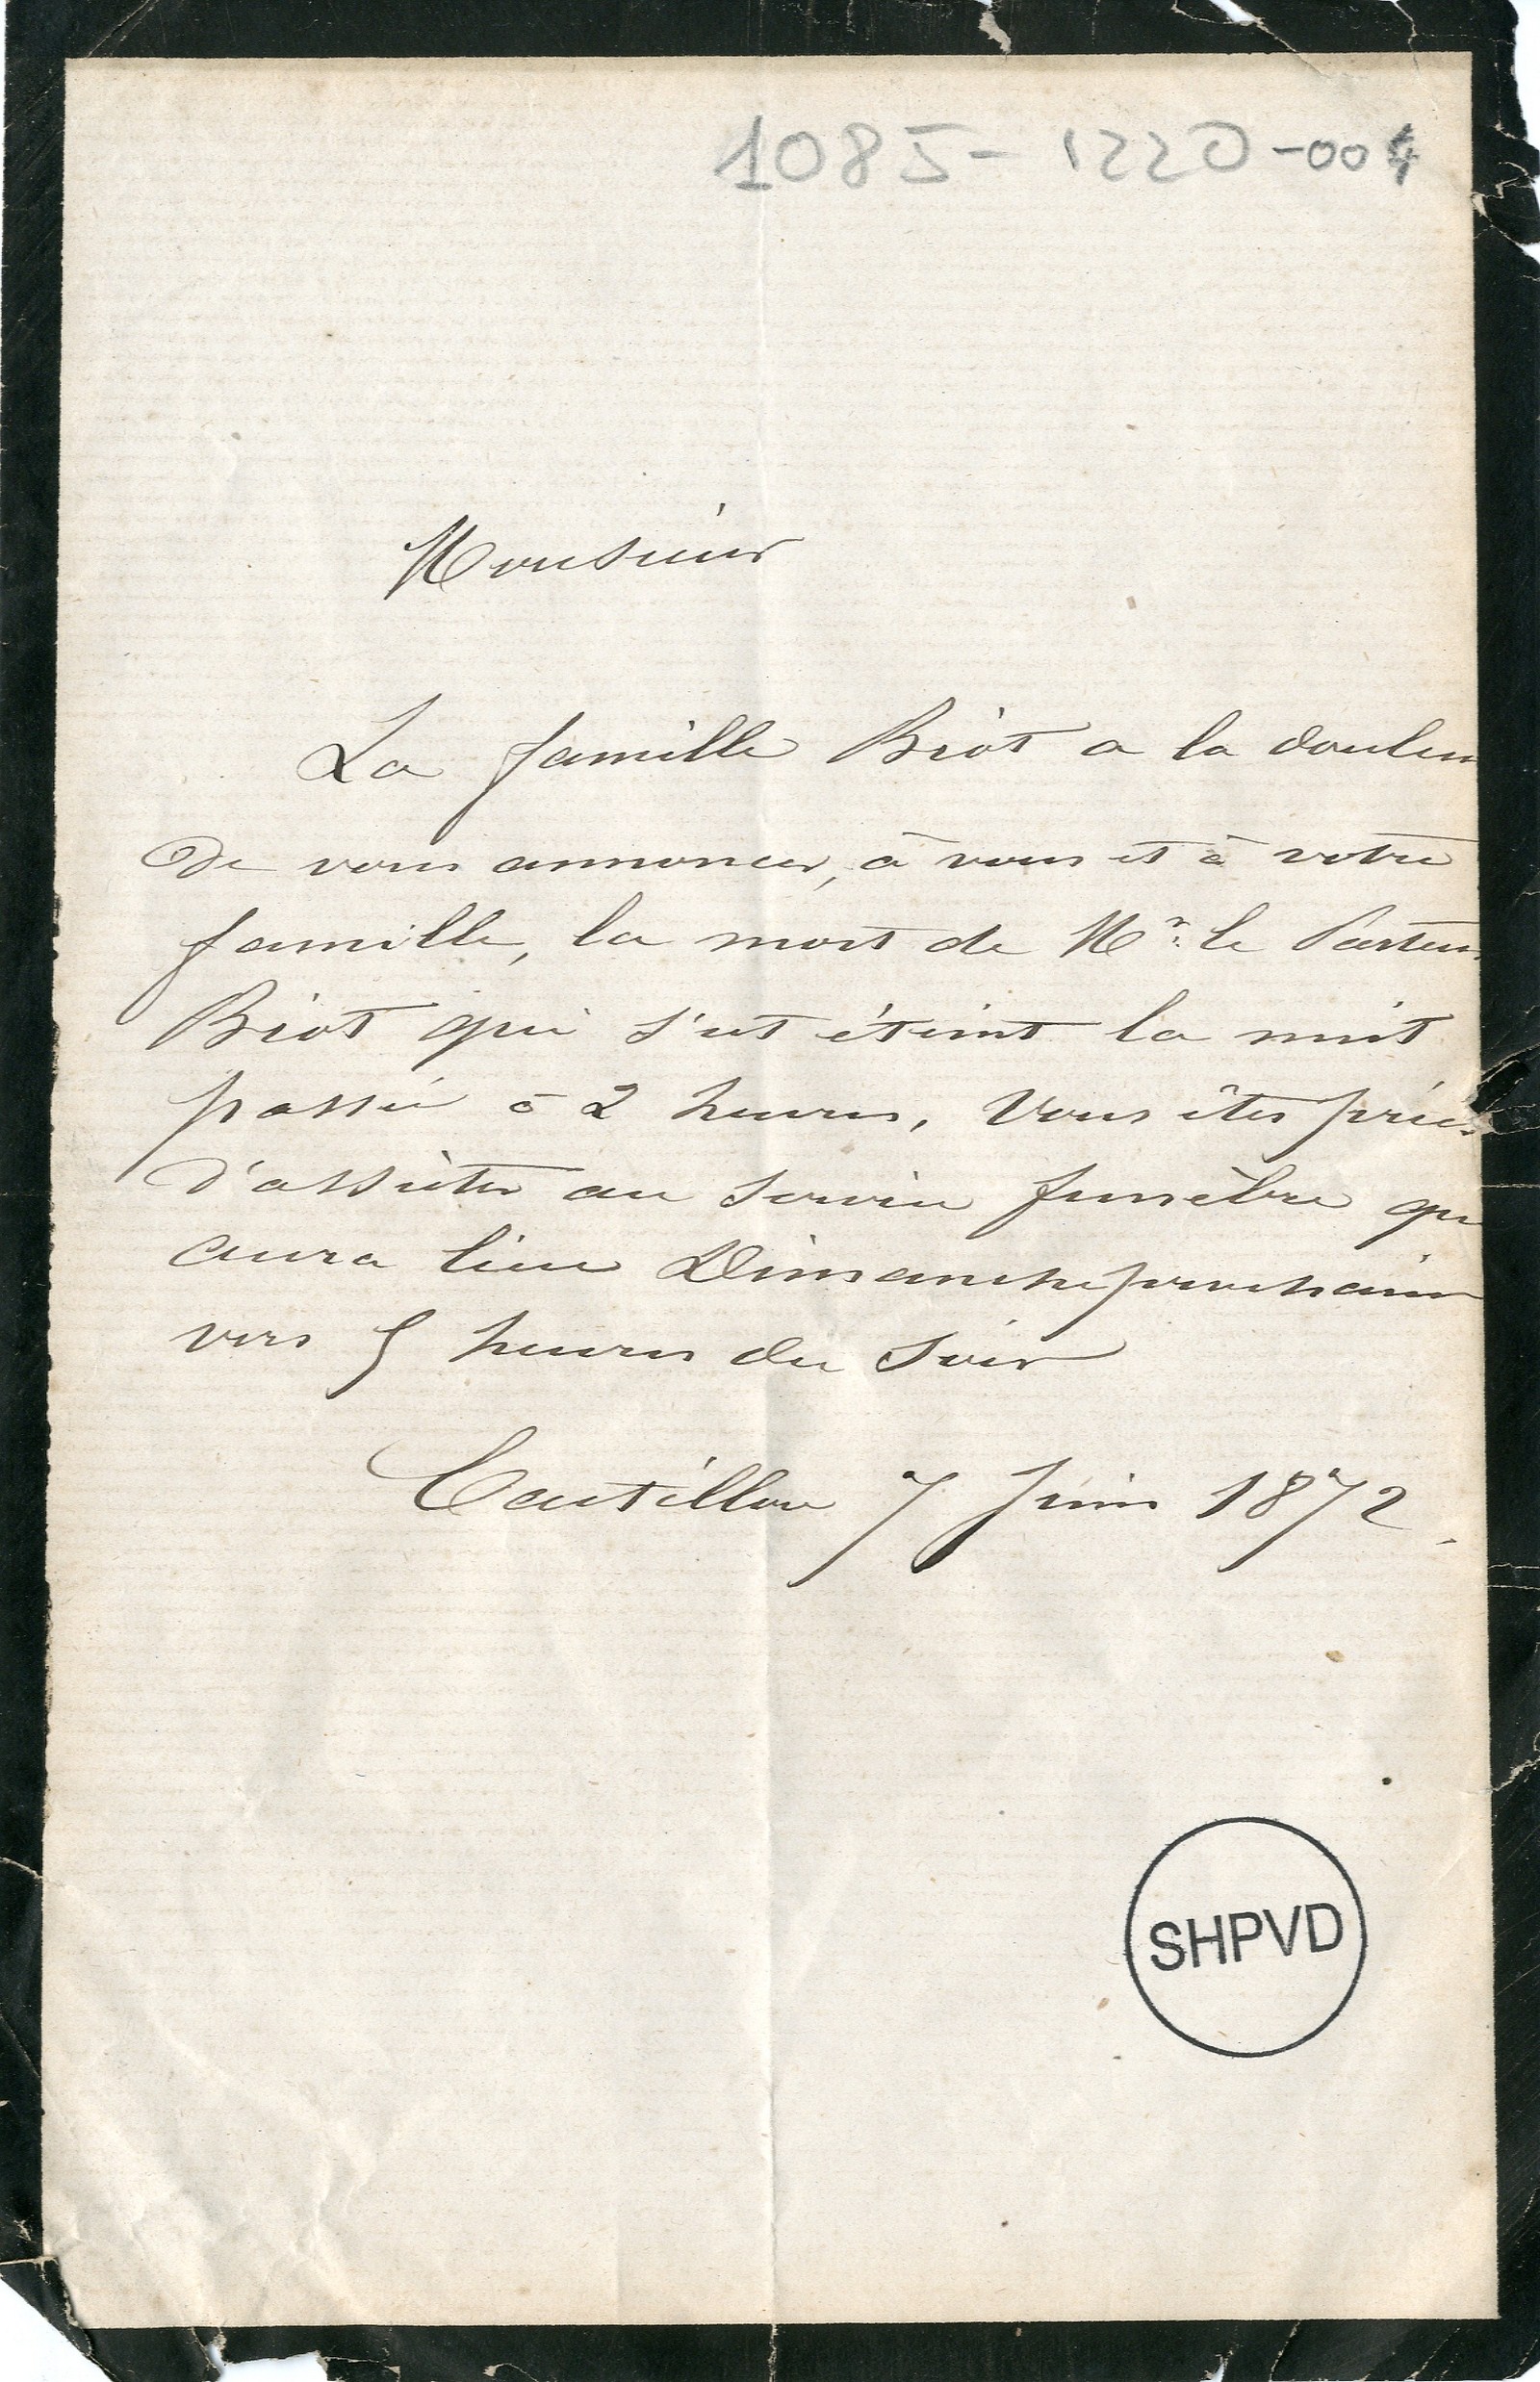 1085-1220-004
Monsieur
La famille Briot a la douleur
de vous annoncer, à vous et à votre
famille, la mort de Mr. le Pasteur
Briot qui s'est éteint la nuit
passée à 2 heures, Vous êtes priés
d'assister au service funèbre qui
aura lieu Dimanche prochain
vers 5 heures du soir
7 Juin 1872.
SHPVD